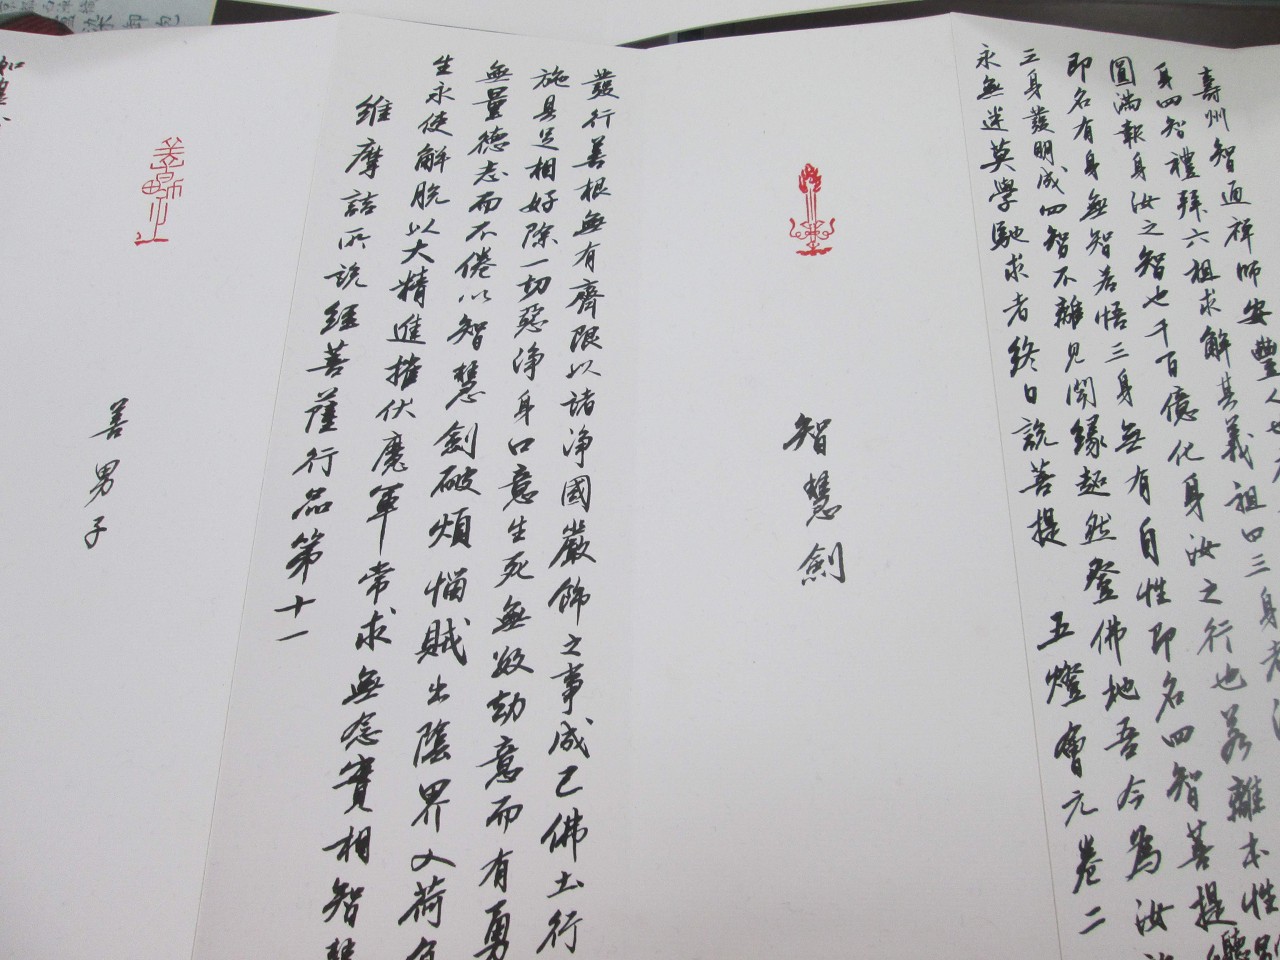 壽州智通禪師安豐人也
身四智禮拜六祖求解其義祖曰三身者
圓滿報身汝之智也千百億化身汝之行也若離本性別
即名有身無智若悟三身無有自性即名四智菩提聽
三身發明成四智不離見聞緣超然登佛地吾今為汝
永無迷莫學馳求者終日說菩提 五燈會元卷二
智慧劍
發行善根無有齊限以諸淨國嚴飾之事成己佛土行
施具足相好除一切惡淨身口意生死無數劫意而有勇
無量德志而不倦以智慧劍破煩惱賊出陰界入荷負
生永使解脫以大精進摧伏魔軍常求無念實相智慧
維摩詰所說經菩薩行品第十一
善男子